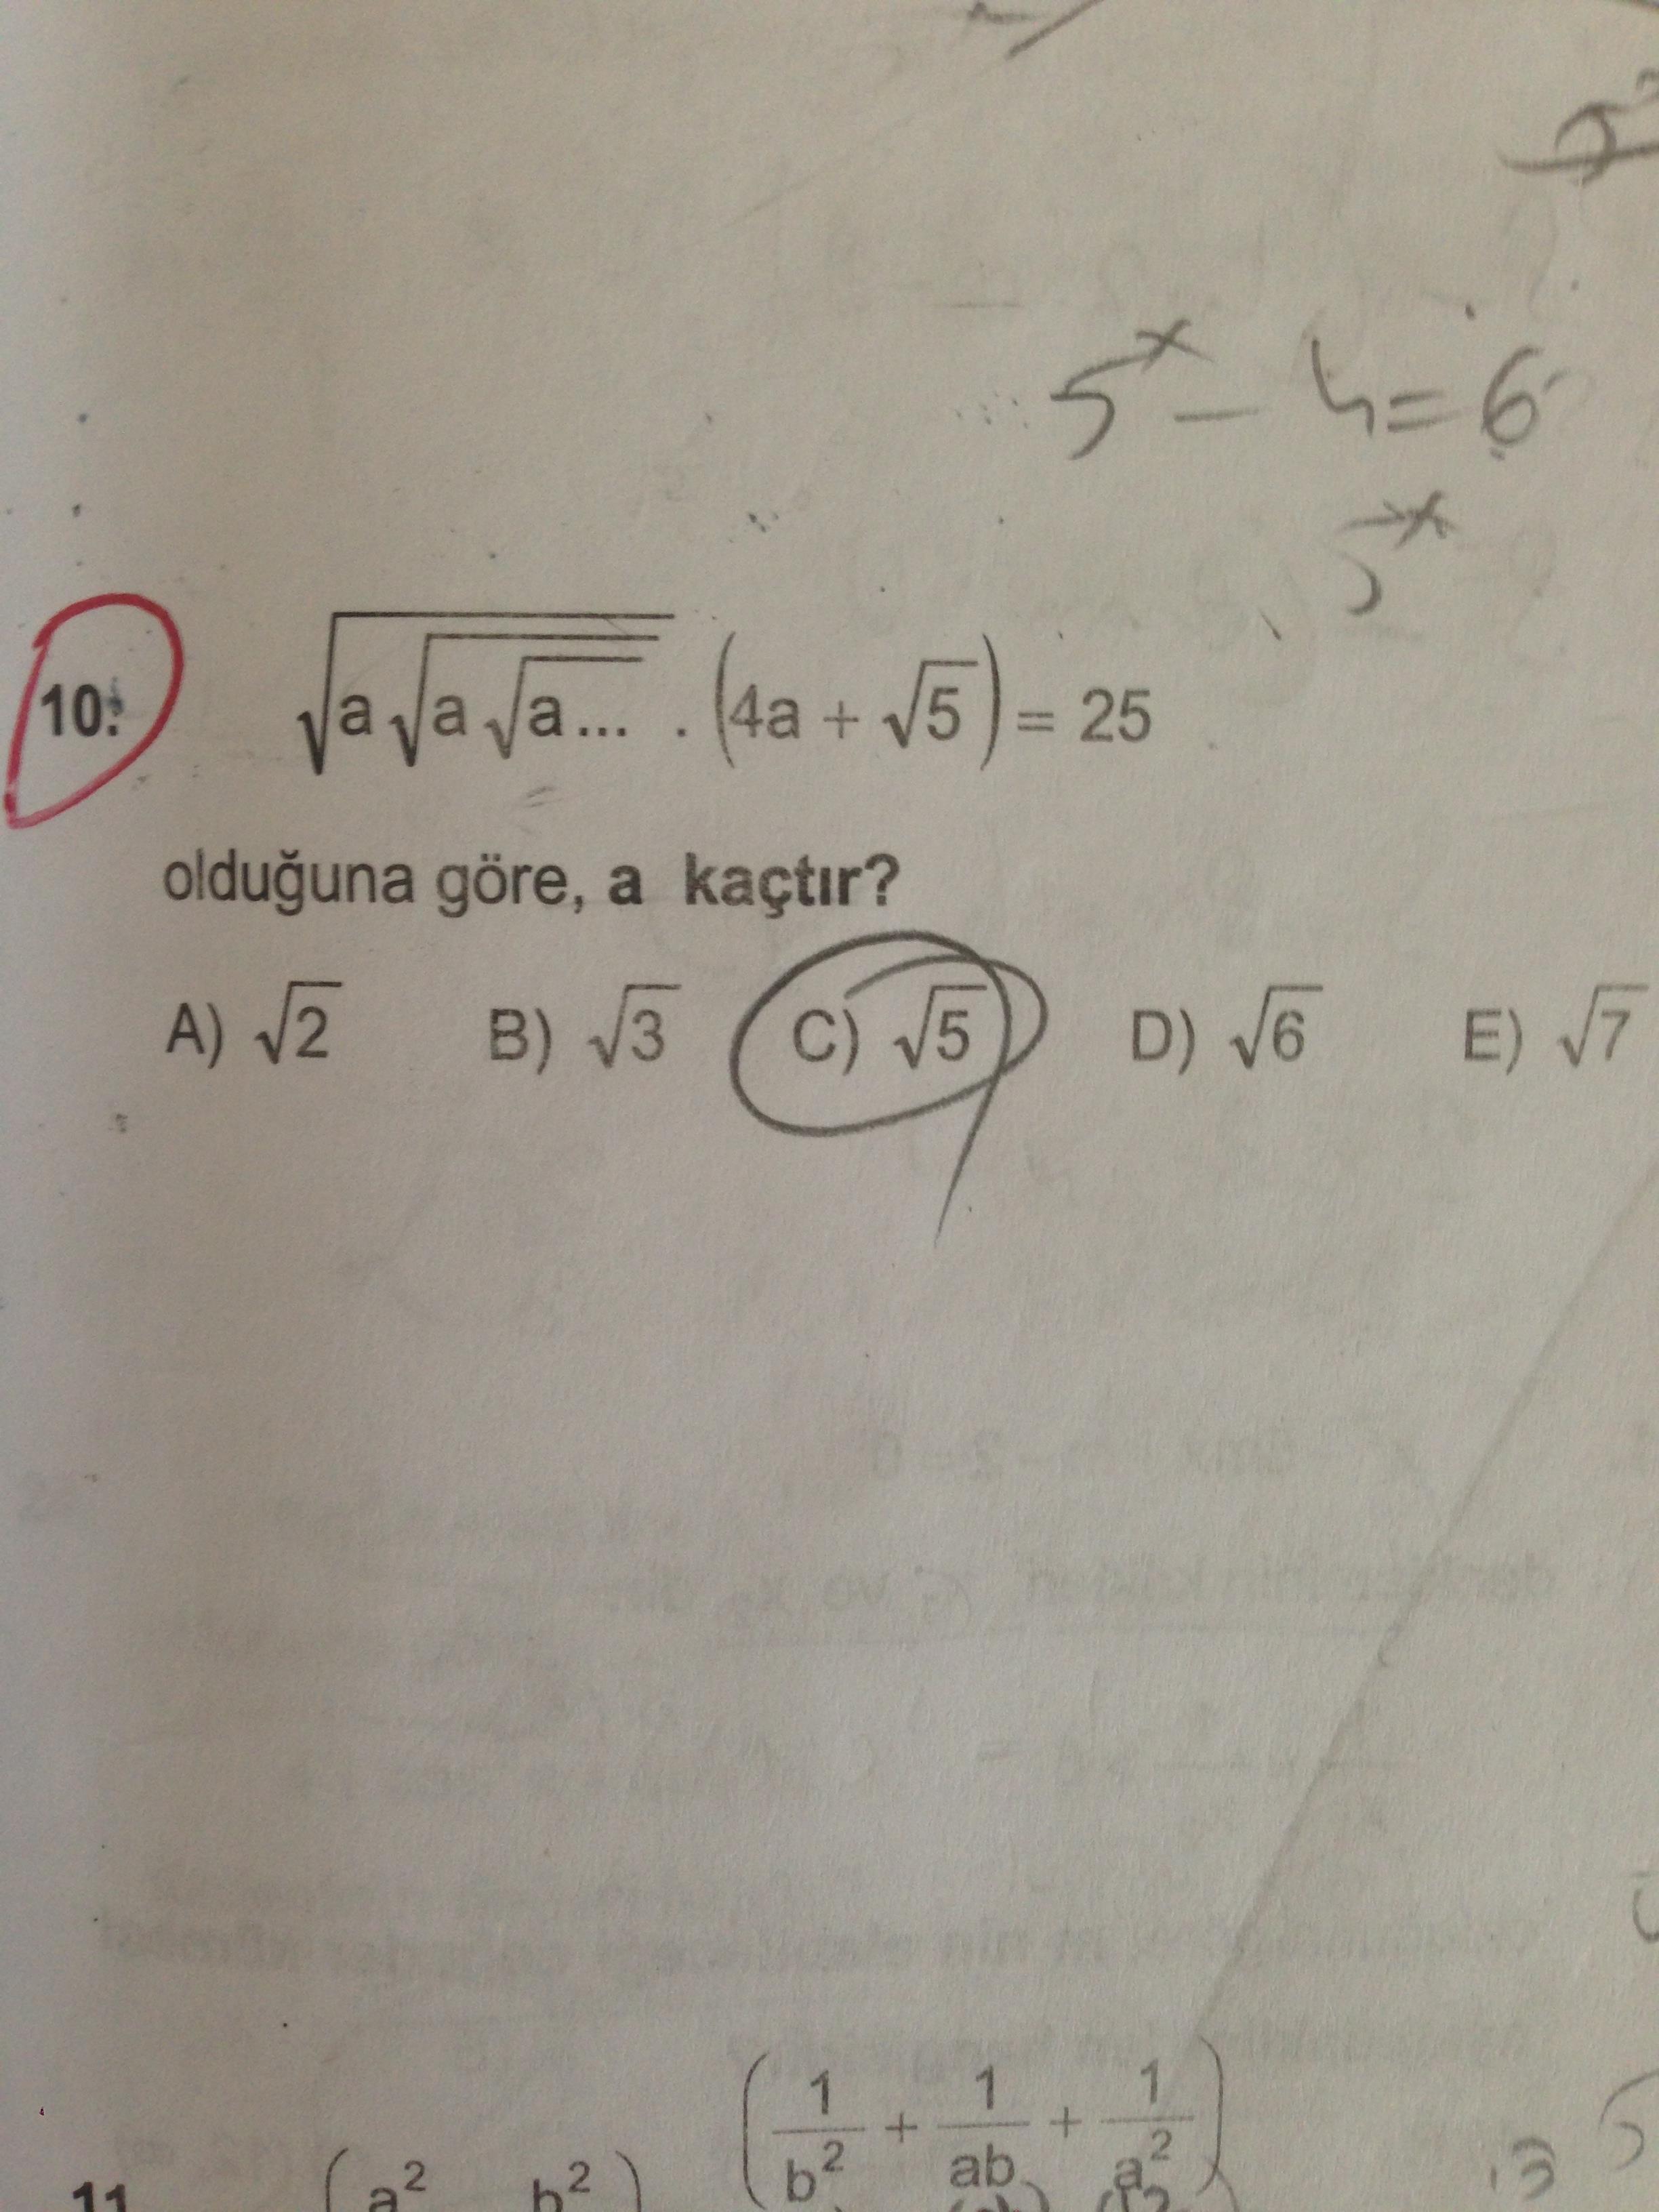 5ˣ - 4 = 6
5ˣ
10. √a√a√a... . (4a + √5) = 25
olduğuna göre, a kaçtır?
A) √2 B) √3 C) √5 D) √6 E) √7
(1/b² + 1/ab + 1/a²)
11 (a² b²)